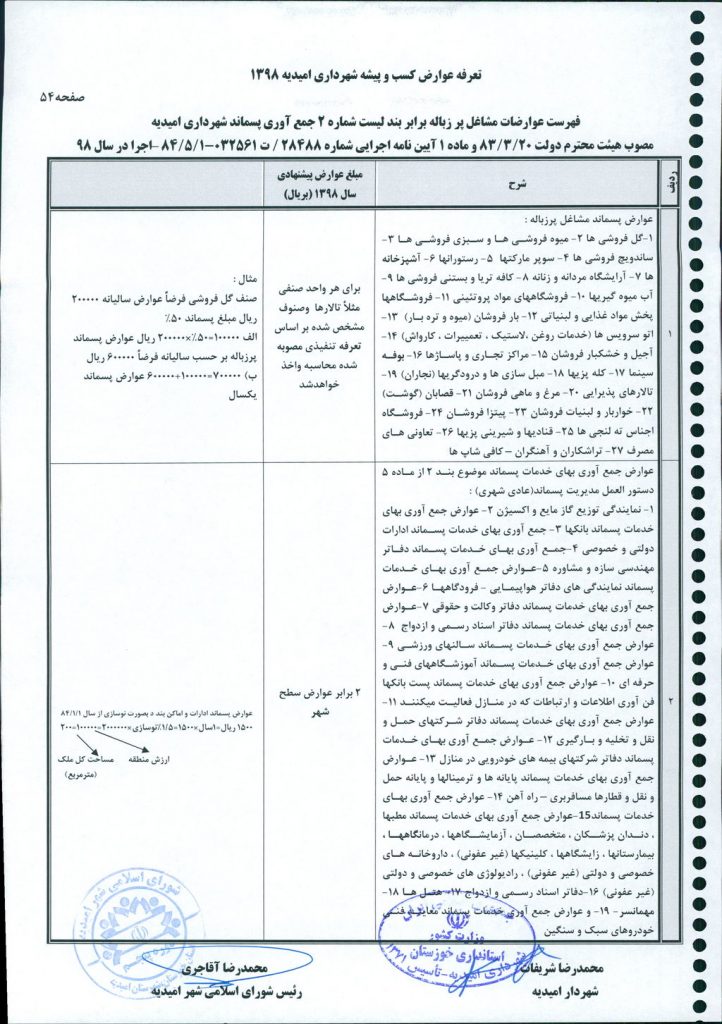 تعرفه عوارض کسب و پیشه شهرداری امیدیه ۱۳۹۸
صفحه۵۴
فهرست عوارضات مشاغل پر زباله برابر بند لیست شماره ۲ جمع آوری پسماند شهرداری امیدیه
مصوب هیئت محترم دولت ۸۳/۳/۲۰ و ماده ۱ آیین نامه اجرایی شماره ۲۸۴۸۸ / ت ۰۳۲۵۶۱-۸۴/۵/۱ –اجرا در سال ۹۸
ردیف
شرح
مبلغ عوارض پیشنهادی
سال ۱۳۹۸ (بریال)
۱
عوارض پسماند مشاغل پرزباله :
۱-گل فروشی ها ۲- میوه فروشی ها و سبزی فروشی ها ۳-
ساندویچ فروشی ها ۴- سوپر مارکتها ۵- رستورانها ۶- آشپزخانه
ها ۷- آرایشگاه مردانه و زنانه ۸- کافه تریا و بستنی فروشی ها ۹-
آب میوه گیریها ۱۰- فروشگاههای مواد پروتئینی ۱۱- فروشگاهها
پخش مواد غذایی و لبنیاتی ۱۲- بار فروشان (میوه و تره بار) ۱۳-
اتو سرویس ها (خدمات روغن ،لاستیک ، تعمییرات ، کارواش) ۱۴-
آجیل و خشکبار فروشان ۱۵- مراکز تجاری و پاساژها ۱۶- بوفه
سینما ۱۷- کله پزیها ۱۸- مبل سازی ها و درودگریها (نجاران) ۱۹-
تالارهای پذیرایی ۲۰- مرغ و ماهی فروشان ۲۱- قصابان (گوشت)
۲۲- خواربار و لبنیات فروشان ۲۳- پیتزا فروشان ۲۴- فروشگاه
اجناس ته لنجی ها ۲۵- قنادیها و شیرینی پزیها ۲۶- تعاونی های
مصرف ۲۷- تراشکاران و آهنگران – کافی شاپ ها
برای هر واحد صنفی
مثلاً تالارها وصنوف
مشخص شده بر اساس
تعرفه تنفیذی مصوبه
شده محاسبه واخذ
خواهدشد
مثال :
صنف گل فروشی فرضاً عوارض سالیانه ۲۰۰۰۰۰
ریال مبلغ پسماند ۵۰٪
الف ۱۰۰۰۰۰=۵۰٪×۲۰۰۰۰۰ ریال عوارض پسماند
پرزباله بر حسب سالیانه فرضاً ۶۰۰۰۰۰ ریال
ب) ۷۰۰۰۰۰=۱۰۰۰۰۰+۶۰۰۰۰۰ عوارض پسماند
یکسال
۲
عوارض جمع آوری بهای خدمات پسماند موضوع بند ۲ از ماده ۵
دستور العمل مدیریت پسماند(عادی شهری) :
۱- نمایندگی توزیع گاز مایع و اکسیژن ۲- عوارض جمع آوری بهای
خدمات پسماند بانکها ۳- جمع آوری بهای خدمات پسماند ادارات
دولتی و خصوصی ۴-جمع آوری بهای خدمات پسماند دفاتر
مهندسی سازه و مشاوره ۵-عوارض جمع آوری بهای خدمات
پسماند نمایندگی های دفاتر هواپیمایی - فرودگاهها ۶-عوارض
جمع آوری بهای خدمات پسماند دفاتر وکالت و حقوقی ۷-عوارض
جمع آوری بهای خدمات پسماند دفاتر اسناد رسمی و ازدواج ۸-
عوارض جمع آوری بهای خدمات پسماند سالنهای ورزشی ۹-
عوارض جمع آوری بهای خدمات پسماند آموزشگاههای فنی و
حرفه ای ۱۰- عوارض جمع آوری بهای خدمات پسماند پست بانکها
فن آوری اطلاعات و ارتباطات که در منازل فعالیت میکنند ۱۱-
عوارض جمع آوری بهای خدمات پسماند دفاتر شرکتهای حمل و
نقل و تخلیه و بارگیری ۱۲- عوارض جمع آوری بهای خدمات
پسماند دفاتر شرکتهای بیمه های خودرویی در منازل ۱۳- عوارض
جمع آوری بهای خدمات پسماند پایانه ها و ترمینالها و پایانه حمل
و نقل و قطارها مسافربری – راه آهن ۱۴- عوارض جمع آوری بهای
خدمات پسماند15-عوارض جمع آوری بهای خدمات پسماند مطبها
، دندان پزشکان ، متخصصان ، آزمایشگاهها ، درمانگاهها ،
بیمارستانها ، زایشگاهها ، کلینیکها (غیر عفونی) ، داروخانه های
خصوصی و دولتی (غیر عفونی) ، رادیولوژی های خصوصی و دولتی
(غیر عفونی) ۱۶-دفاتر اسناد رسمی و ازدواج ۱۷- هتل ها ۱۸-
مهمانسر- ۱۹- و عوارض جمع آوری خدمات پسماند معاینه فنی
خودروهای سبک و سنگین
۲ برابر عوارض سطح
شهر
عوارض پسماند ادارات و اماکن بند د بصورت نوسازی از سال ۸۴/۱/۱
۱۵۰۰ ریال=۱سال×۱۵۰۰=۱/۵٪توسازی×۲۰۰۰۰۰=۱۰۰۰×۲۰۰
ارزش منطقه
مساحت کل ملک
(مترمربع)
شورای اسلامی شهر امیدیه
وزارت کشور
استانداری خوزستان
شهرداری امیدیه-تأسیس ۱۳۷۱
محمدرضا شریفات
شهردار امیدیه
محمدرضا آقاجری
رئیس شورای اسلامی شهر امیدیه